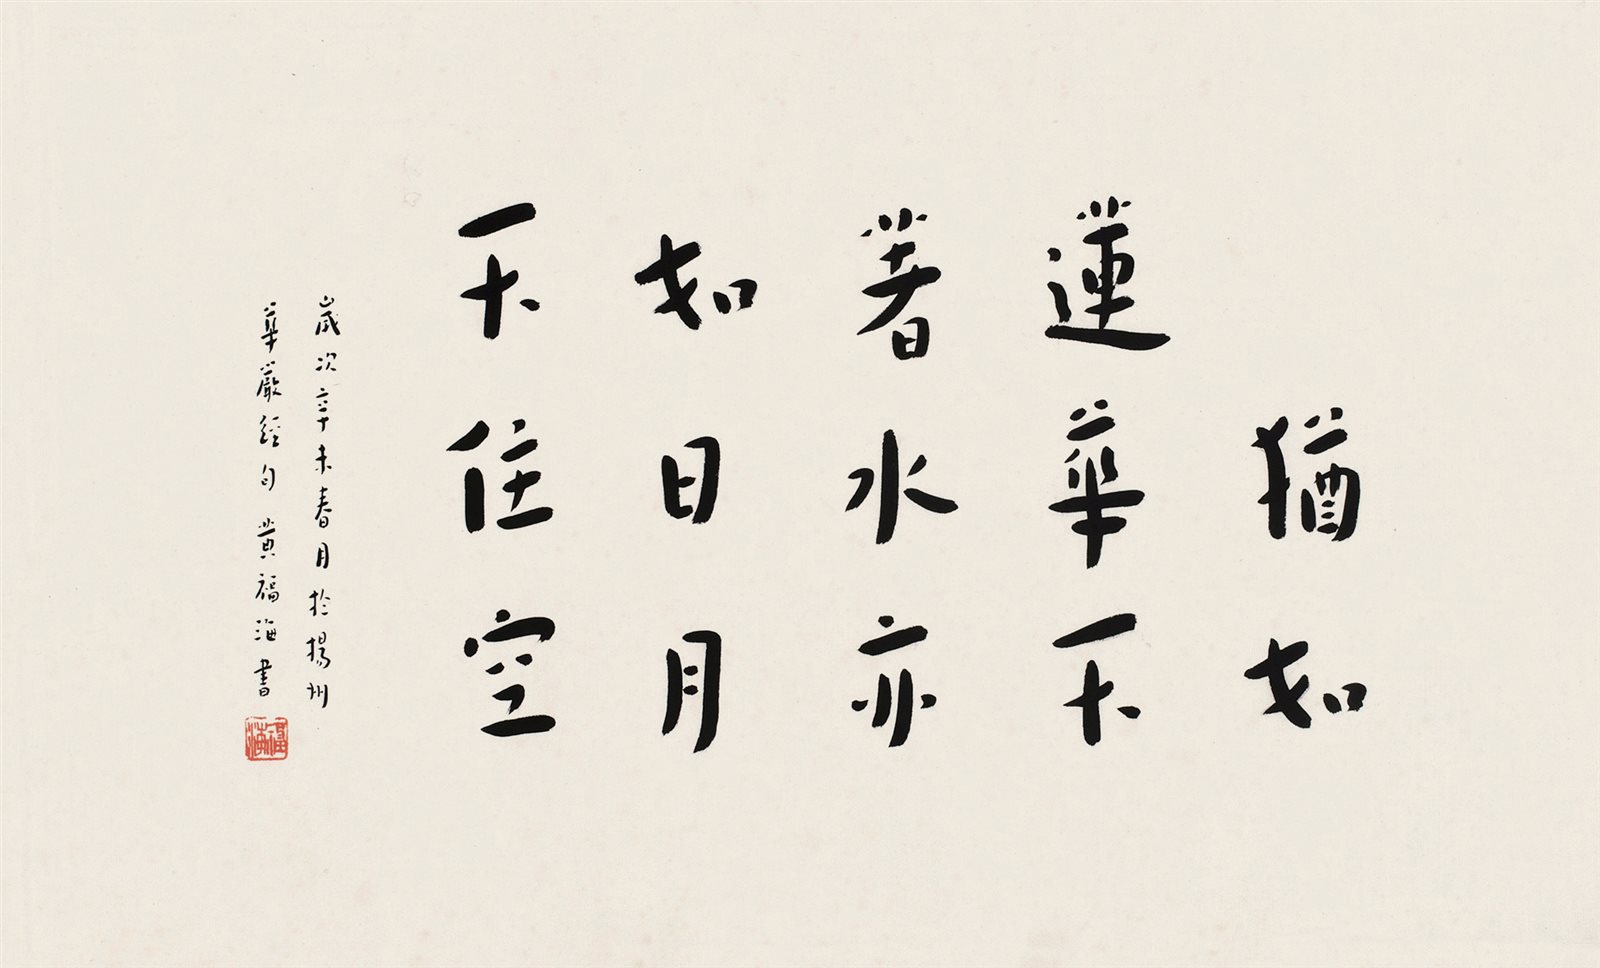 猶如
蓮華不
著水亦
如日月
不住空
歲次辛未春月於揚州
華嚴經句黃福海書
福海